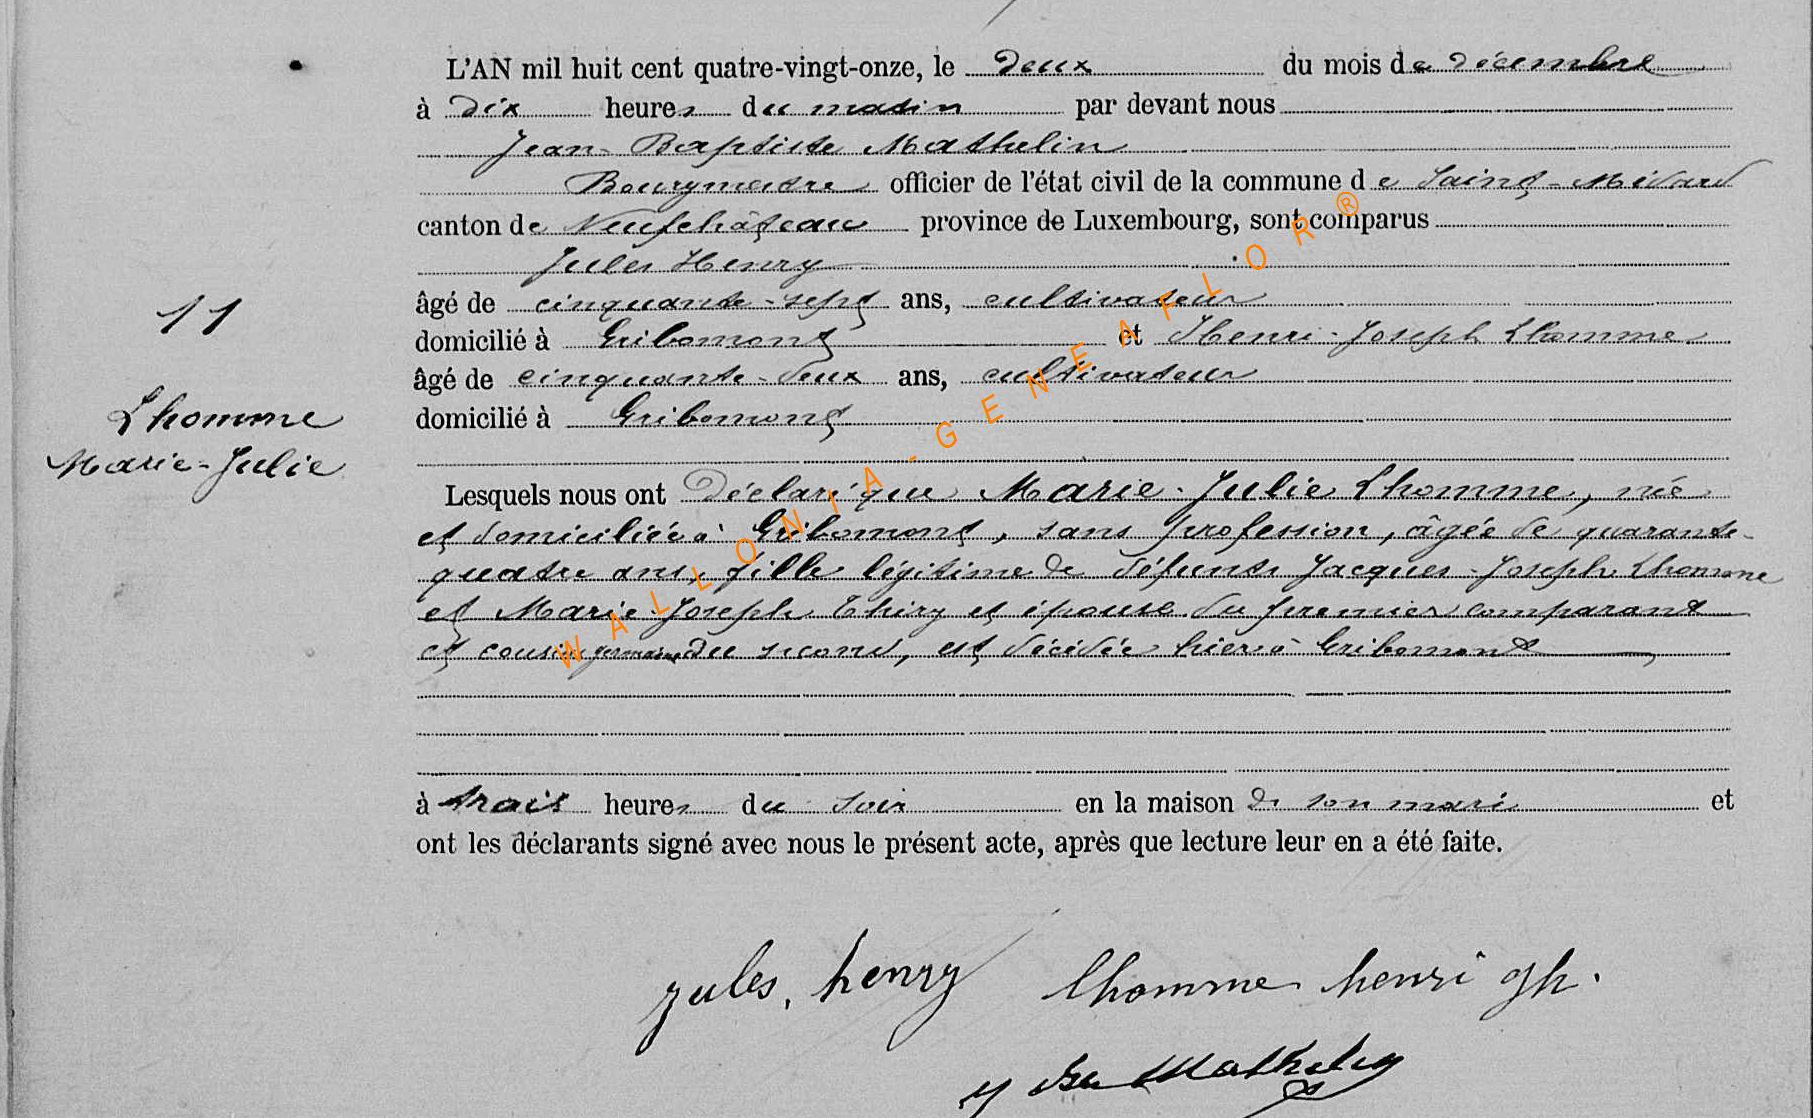 L'AN mil huit cent quatre-vingt-onze, le deux du mois de décembre
à dix heures du matin par devant nous
Jean-Baptiste Mathelin
Bourgmestre officier de l'état civil de la commune de Saint-Médard
canton de Neufchâteau province de Luxembourg, sont comparus
Jules Henry
11
âgé de cinquante-sept ans, cultivateur
domicilié à Gribomont et Henri-Joseph Lhomme
âgé de cinquante-deux ans, cultivateur
Lhomme
domicilié à Gribomont
Marie-Julie
Lesquels nous ont déclaré que Marie-Julie Lhomme, née
et domiciliée à Gribomont, sans profession, âgée de quarante-
quatre ans, fille légitime de défunts Jacques-Joseph Lhomme
et Marie-Joseph Thiry et épouse du premier comparant
et cousine germaine du second, est décédée hier à Gribomont
à trois heures du soir en la maison de son mari et
ont les déclarants signé avec nous le présent acte, après que lecture leur en a été faite.
jules, henry lhomme henri jh.
Mathelin
WALLONIA-GENEAFLOR®